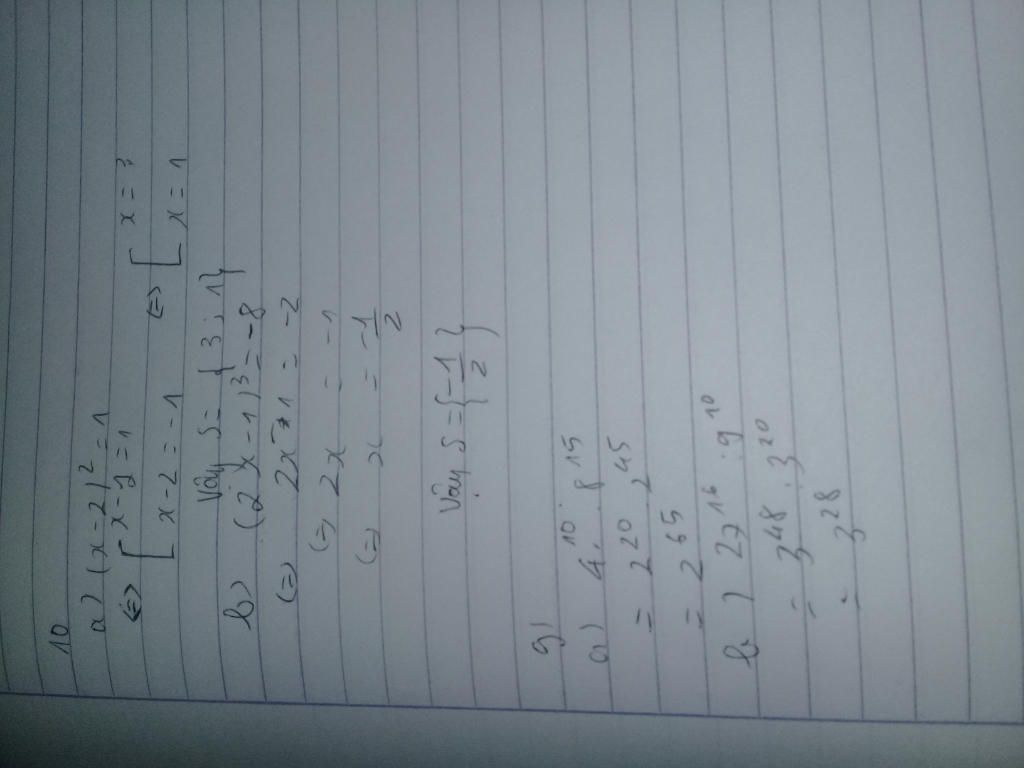 10
a) (x-2)² = 1
<=> [ x-2 = 1
[ x-2 = -1 <=> [ x = 3
[ x = 1
Vậy S = { 3; 1}
b) (2x-1)³ = -8
(=) 2x-1 = -2
(=) 2x = -1
(=) x = -1/2
Vậy S = {-1/2}
9)
a) 4¹⁰ . 8¹⁵
= 2²⁰ . 2⁴⁵
= 2⁶⁵
b) 27¹⁶ : 9¹⁰
= 3⁴⁸ : 3²⁰
= 3²⁸